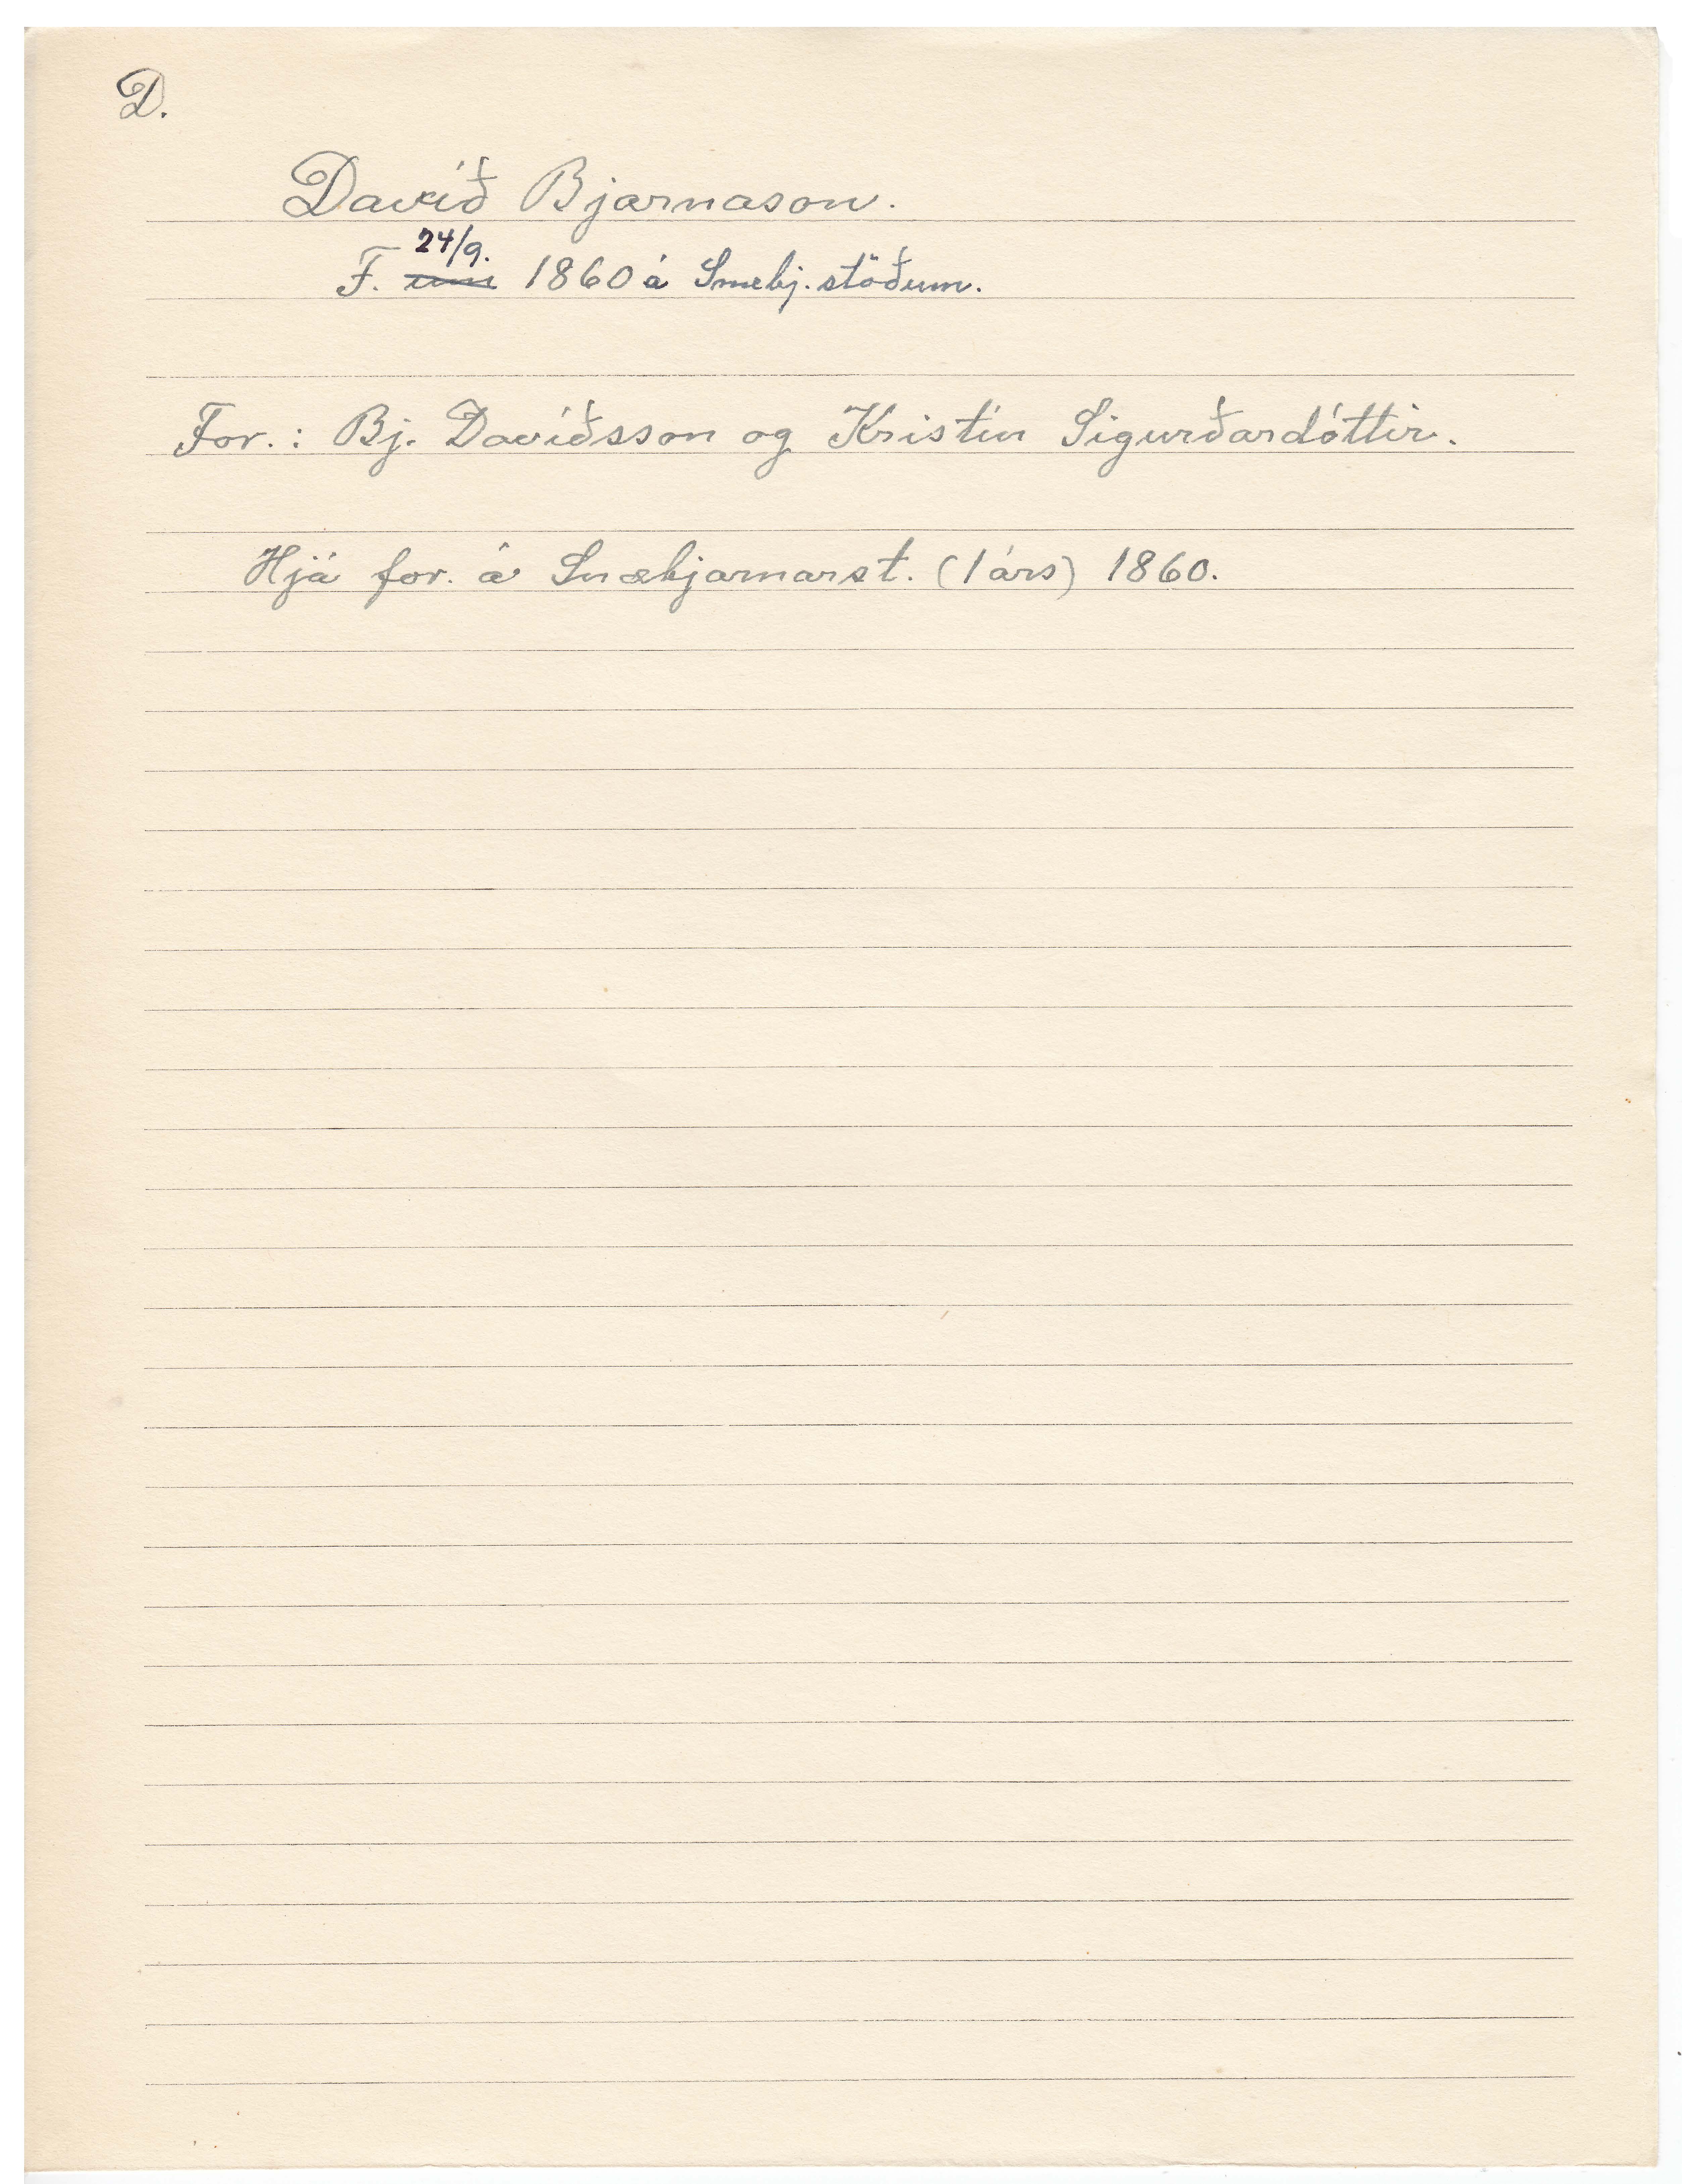 D.
Davíð Bjarnason.
24/9.
F. um 1860 á Snæbj.stöðum.
For.: Bj. Davíðsson og Kristín Sigurðardóttir.
Hjá for. á Snæbjarnarst. (1 árs) 1860.